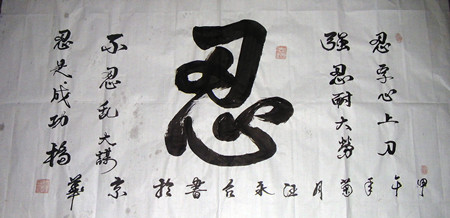 忍字心上刀
强忍耐大劳
忍
不忍乱大谋
忍是成功桥
甲午年菊月汪台書於京華